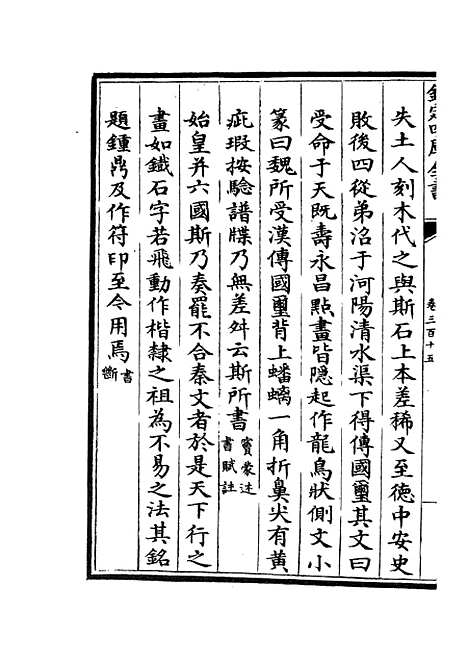 欽定四庫全書
卷三百十五
失土人刻木代之與斯石上本差稀又至德中安史
敗後四從弟沼于河陽清水渠下得傳國璽其文曰
受命于天既壽永昌點畫皆隱起作龍鳥狀側文小
篆曰魏所受漢傳國璽背上蟠螭一角折鼻尖有黄
疵瑕按驗譜牒乃無差舛云斯所書竇蒙述書賦註
始皇并六國斯乃奏罷不合秦文者於是天下行之
畫如鐵石字若飛動作楷隸之祖為不易之法其銘
題鍾鼎及作符印至今用焉書斷